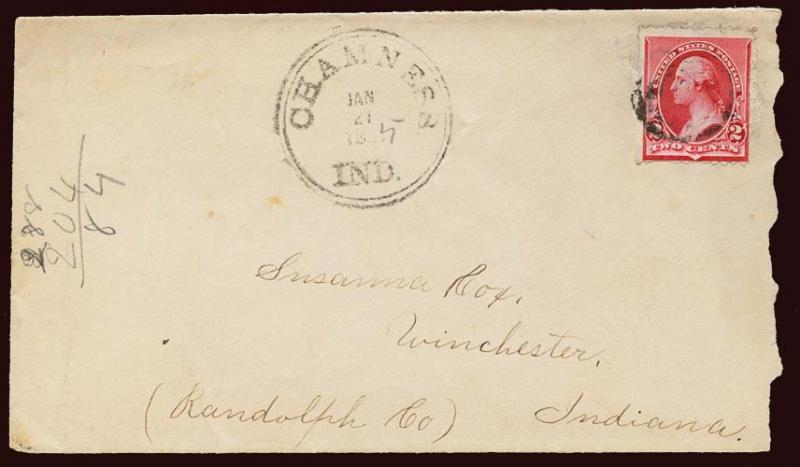 CHAMNESS
JAN
21
IND.
UNITED STATES POSTAGE
2 2
TWO CENTS
288
204
84
Susanna Cox,
Winchester,
(Randolph Co) Indiana.